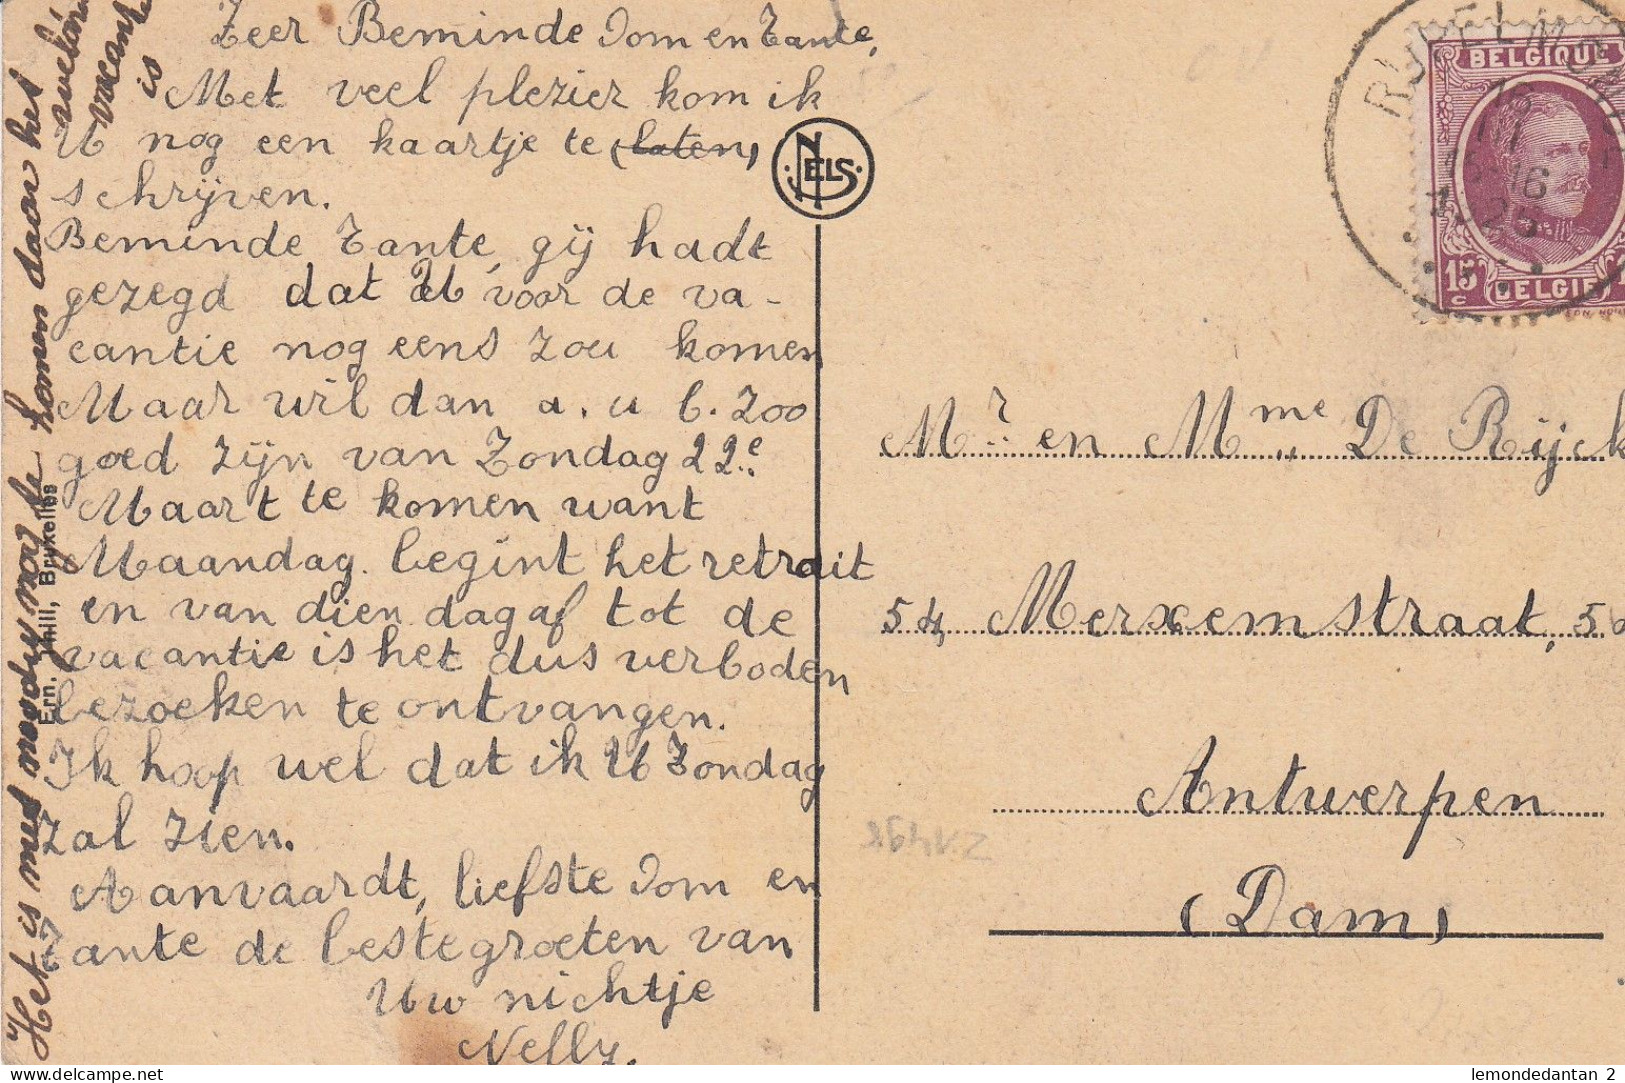 Zeer Beminde Oom en Tante,
Met veel plezier kom ik
U nog een kaartje te (laten)
schrijven.
Beminde Tante, gij hadt
gezegd dat U voor de va-
cantie nog eens zou komen
Maar wil dan a. u b. zoo
goed zijn van Zondag 22e
Maart te komen want
Maandag begint het retrait
en van dien dag af tot de
vacantie is het dus verboden
bezoeken te ontvangen.
Ik hoop wel dat ik U Zondag
zal zien.
Aanvaardt, liefste Oom en
Tante de beste groeten van
Uw nichtje
Nelly.
Het is niet noodig voor te komen daar het
vacant
is
Ern. Thill, Bruxelles
NELS
RUPELMONDE
16
III
15-16
1925
BELGIQUE
15
c
BELGIE
Mr. en Mme De Rijck
54, Merxemstraat, 5
Antwerpen
(Dam)
lemondedantan 2